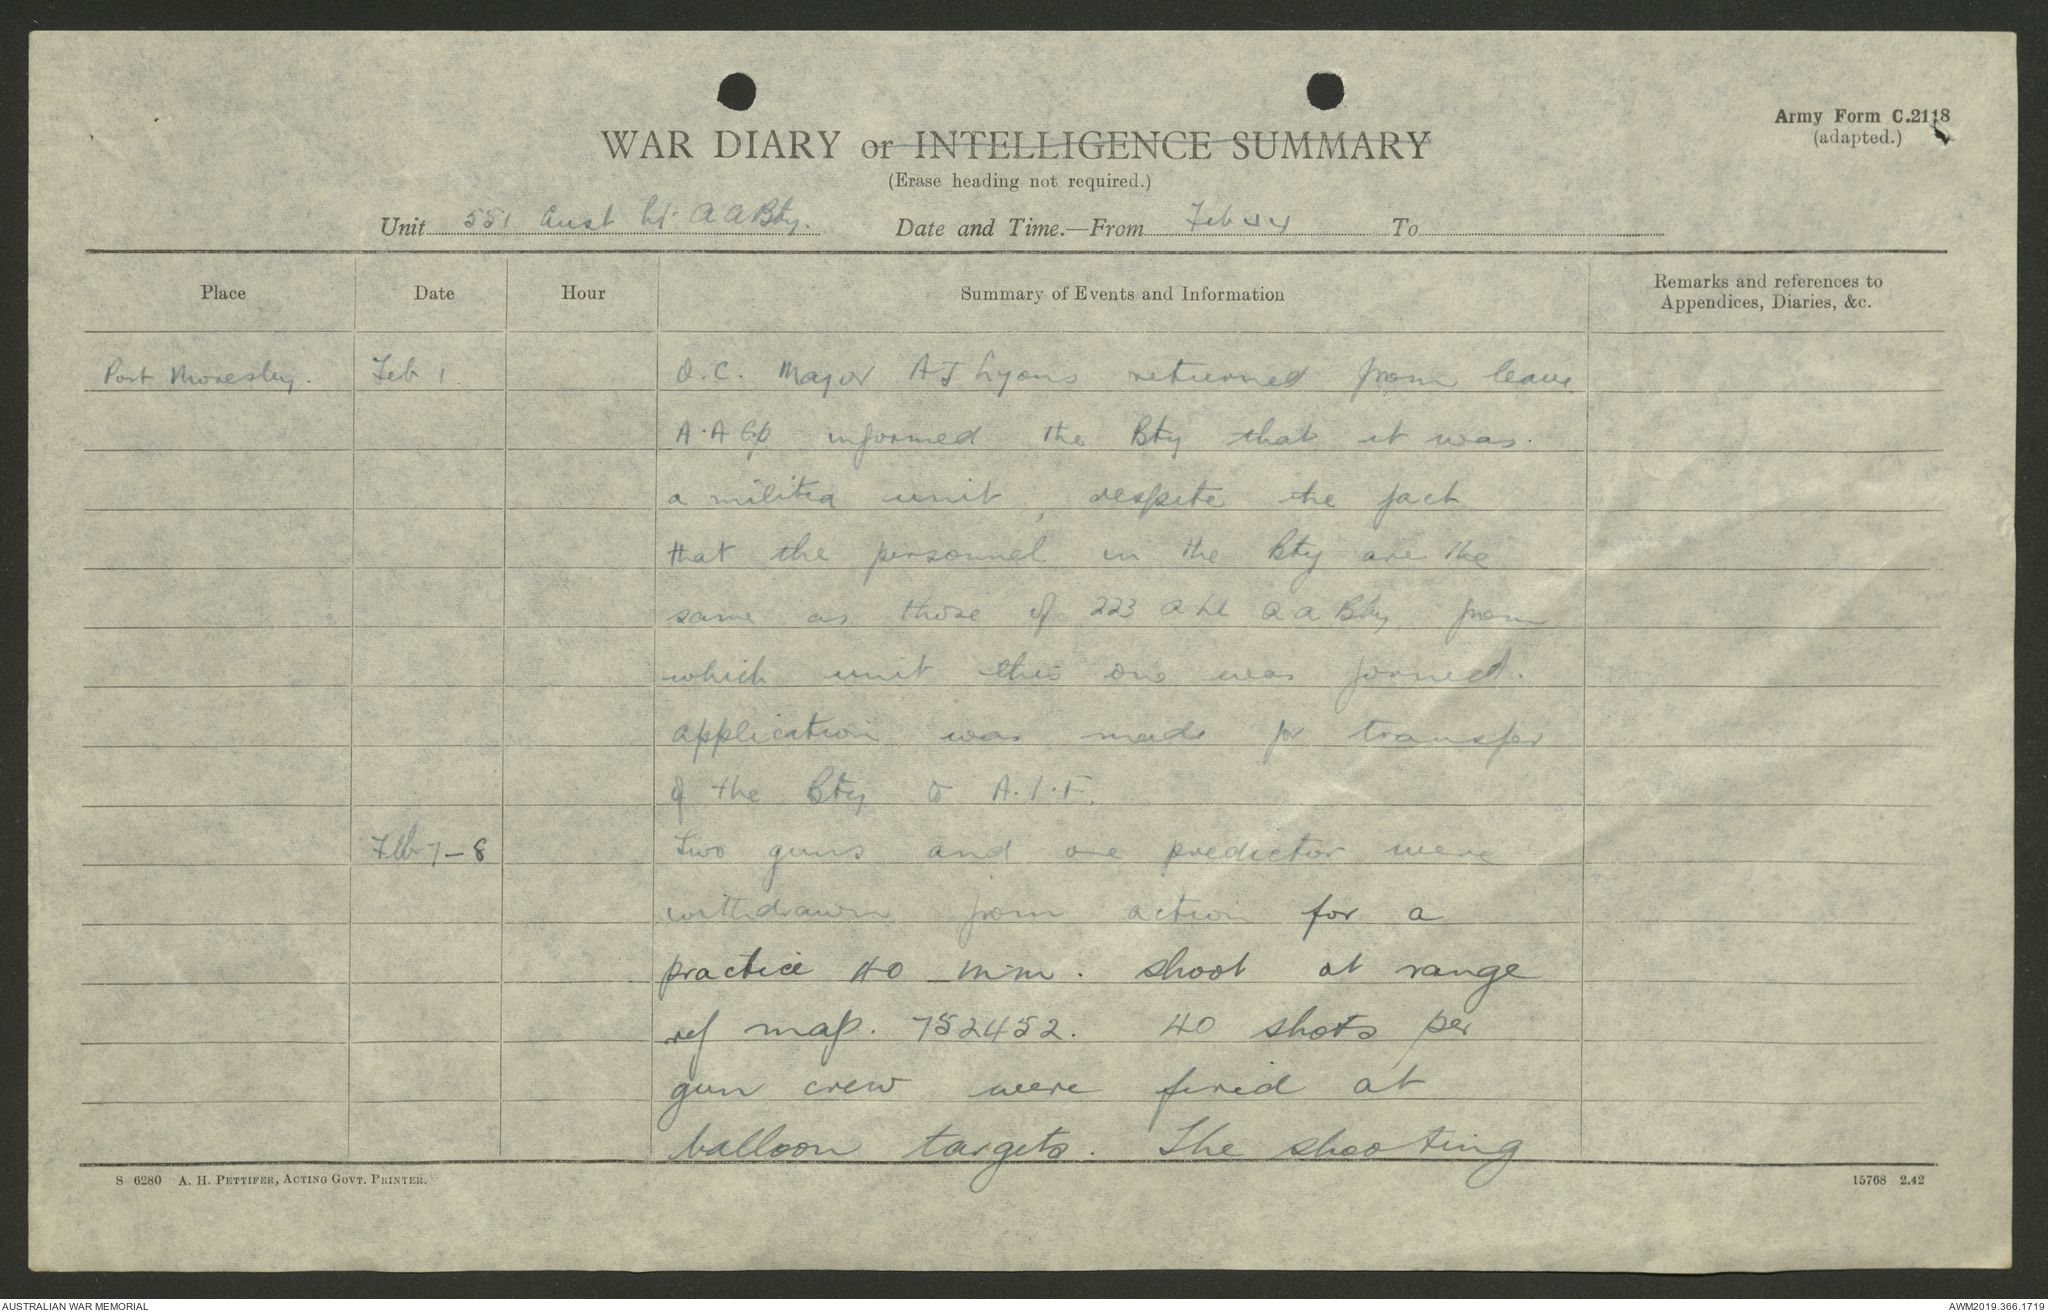 Army Form C.2118
(adapted.)
WAR DIARY or INTELLIGENCE SUMMARY
(Erase heading not required.)
Unit 551 Aust Lt. A A Bty. Date and Time.—From Feb 44 To
Place Date Hour Summary of Events and Information Remarks and references to Appendices, Diaries, &c.
Port Moresby. Feb 1 O.C. Major A J Lyons returned from leave
A.A Gp informed the Bty that it was.
a militia unit, despite the fact
that the personnel in the Bty are the
same as those of 223 A Lt A A Bty, from
which unit this one was formed.
application was made for transfer
of the Bty to A.I.F.
Feb 7-8 Two guns and one predictor were
withdrawn from action for a
practice 40 m.m. shoot at range
ref map. 752452. 40 shots per
gun crew were fired at
balloon targets. The shooting
S 6280 A. H. Pettifer, Acting Govt. Printer. 15768 2.42
AUSTRALIAN WAR MEMORIAL AWM2019.366.1719